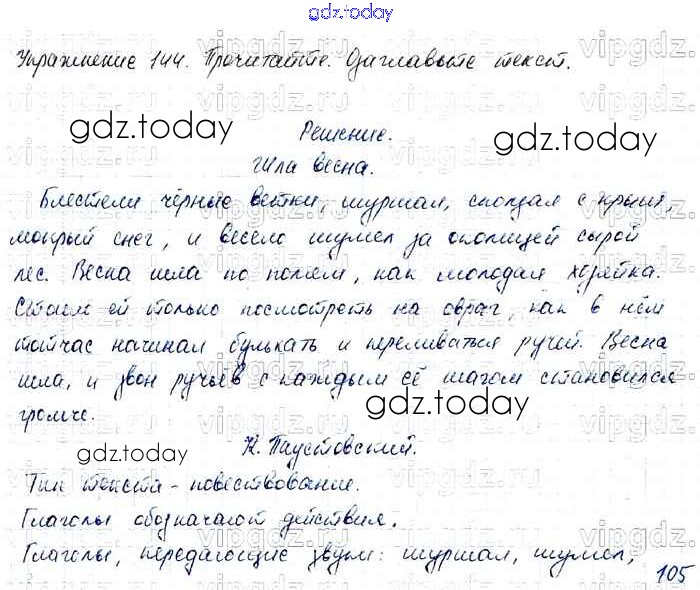 gdz.today
Упражнение 144. Прочитайте. Озаглавьте текст.
gdz.today
gdz.today
Решение.
Шла весна.
Блестели чёрные ветки, шуршал, сползая с крыш,
мокрый снег, и весело шумел за околицей сырой
лес. Весна шла по полям, как молодая хозяйка.
Стоило ей только посмотреть на овраг, как в нём
тотчас начинал булькать и переливаться ручей. Весна
шла, и звон ручьёв с каждым её шагом становился
громче.
gdz.today
gdz.today
К. Паустовский.
Тип текста - повествование.
Глаголы обозначают действия.
Глаголы, передающие звуки: шуршал, шумел,
105